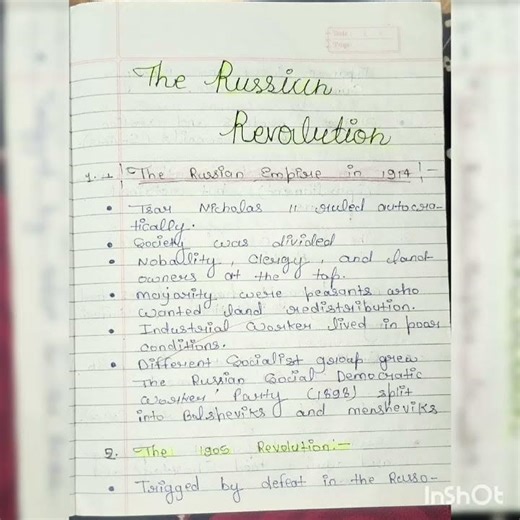 The Russian
Revolution
1. The Russian Empire in 1914 :-
• Tsar Nicholas II ruled autocra-
tically.
• Society was divided
• Noballity, Clergy, and land
owners at the top.
• majority were peasants who
wanted land redistribution.
• Industrial worker lived in poor
conditions.
• Different Socialist group grew
The Russian Social Democratic
worker' Party (1898) split
into Bolsheviks and mensheviks
2. The 1905 Revolution:-
• Trigged by defeat in the Russo-
InShOt